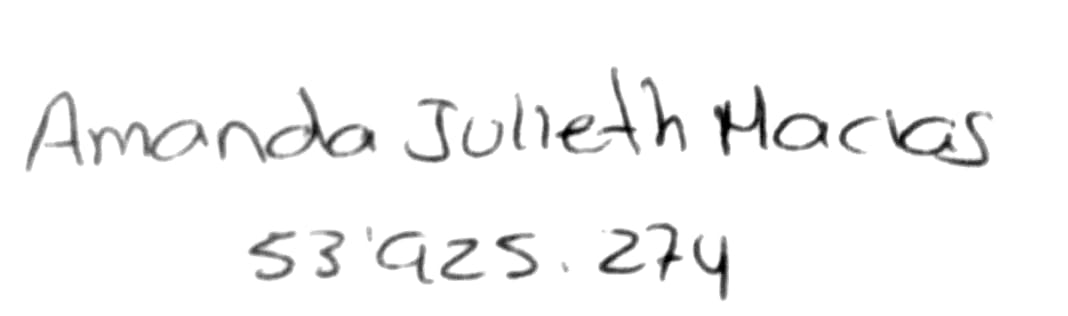 Amanda Julieth Macias
53'925.274